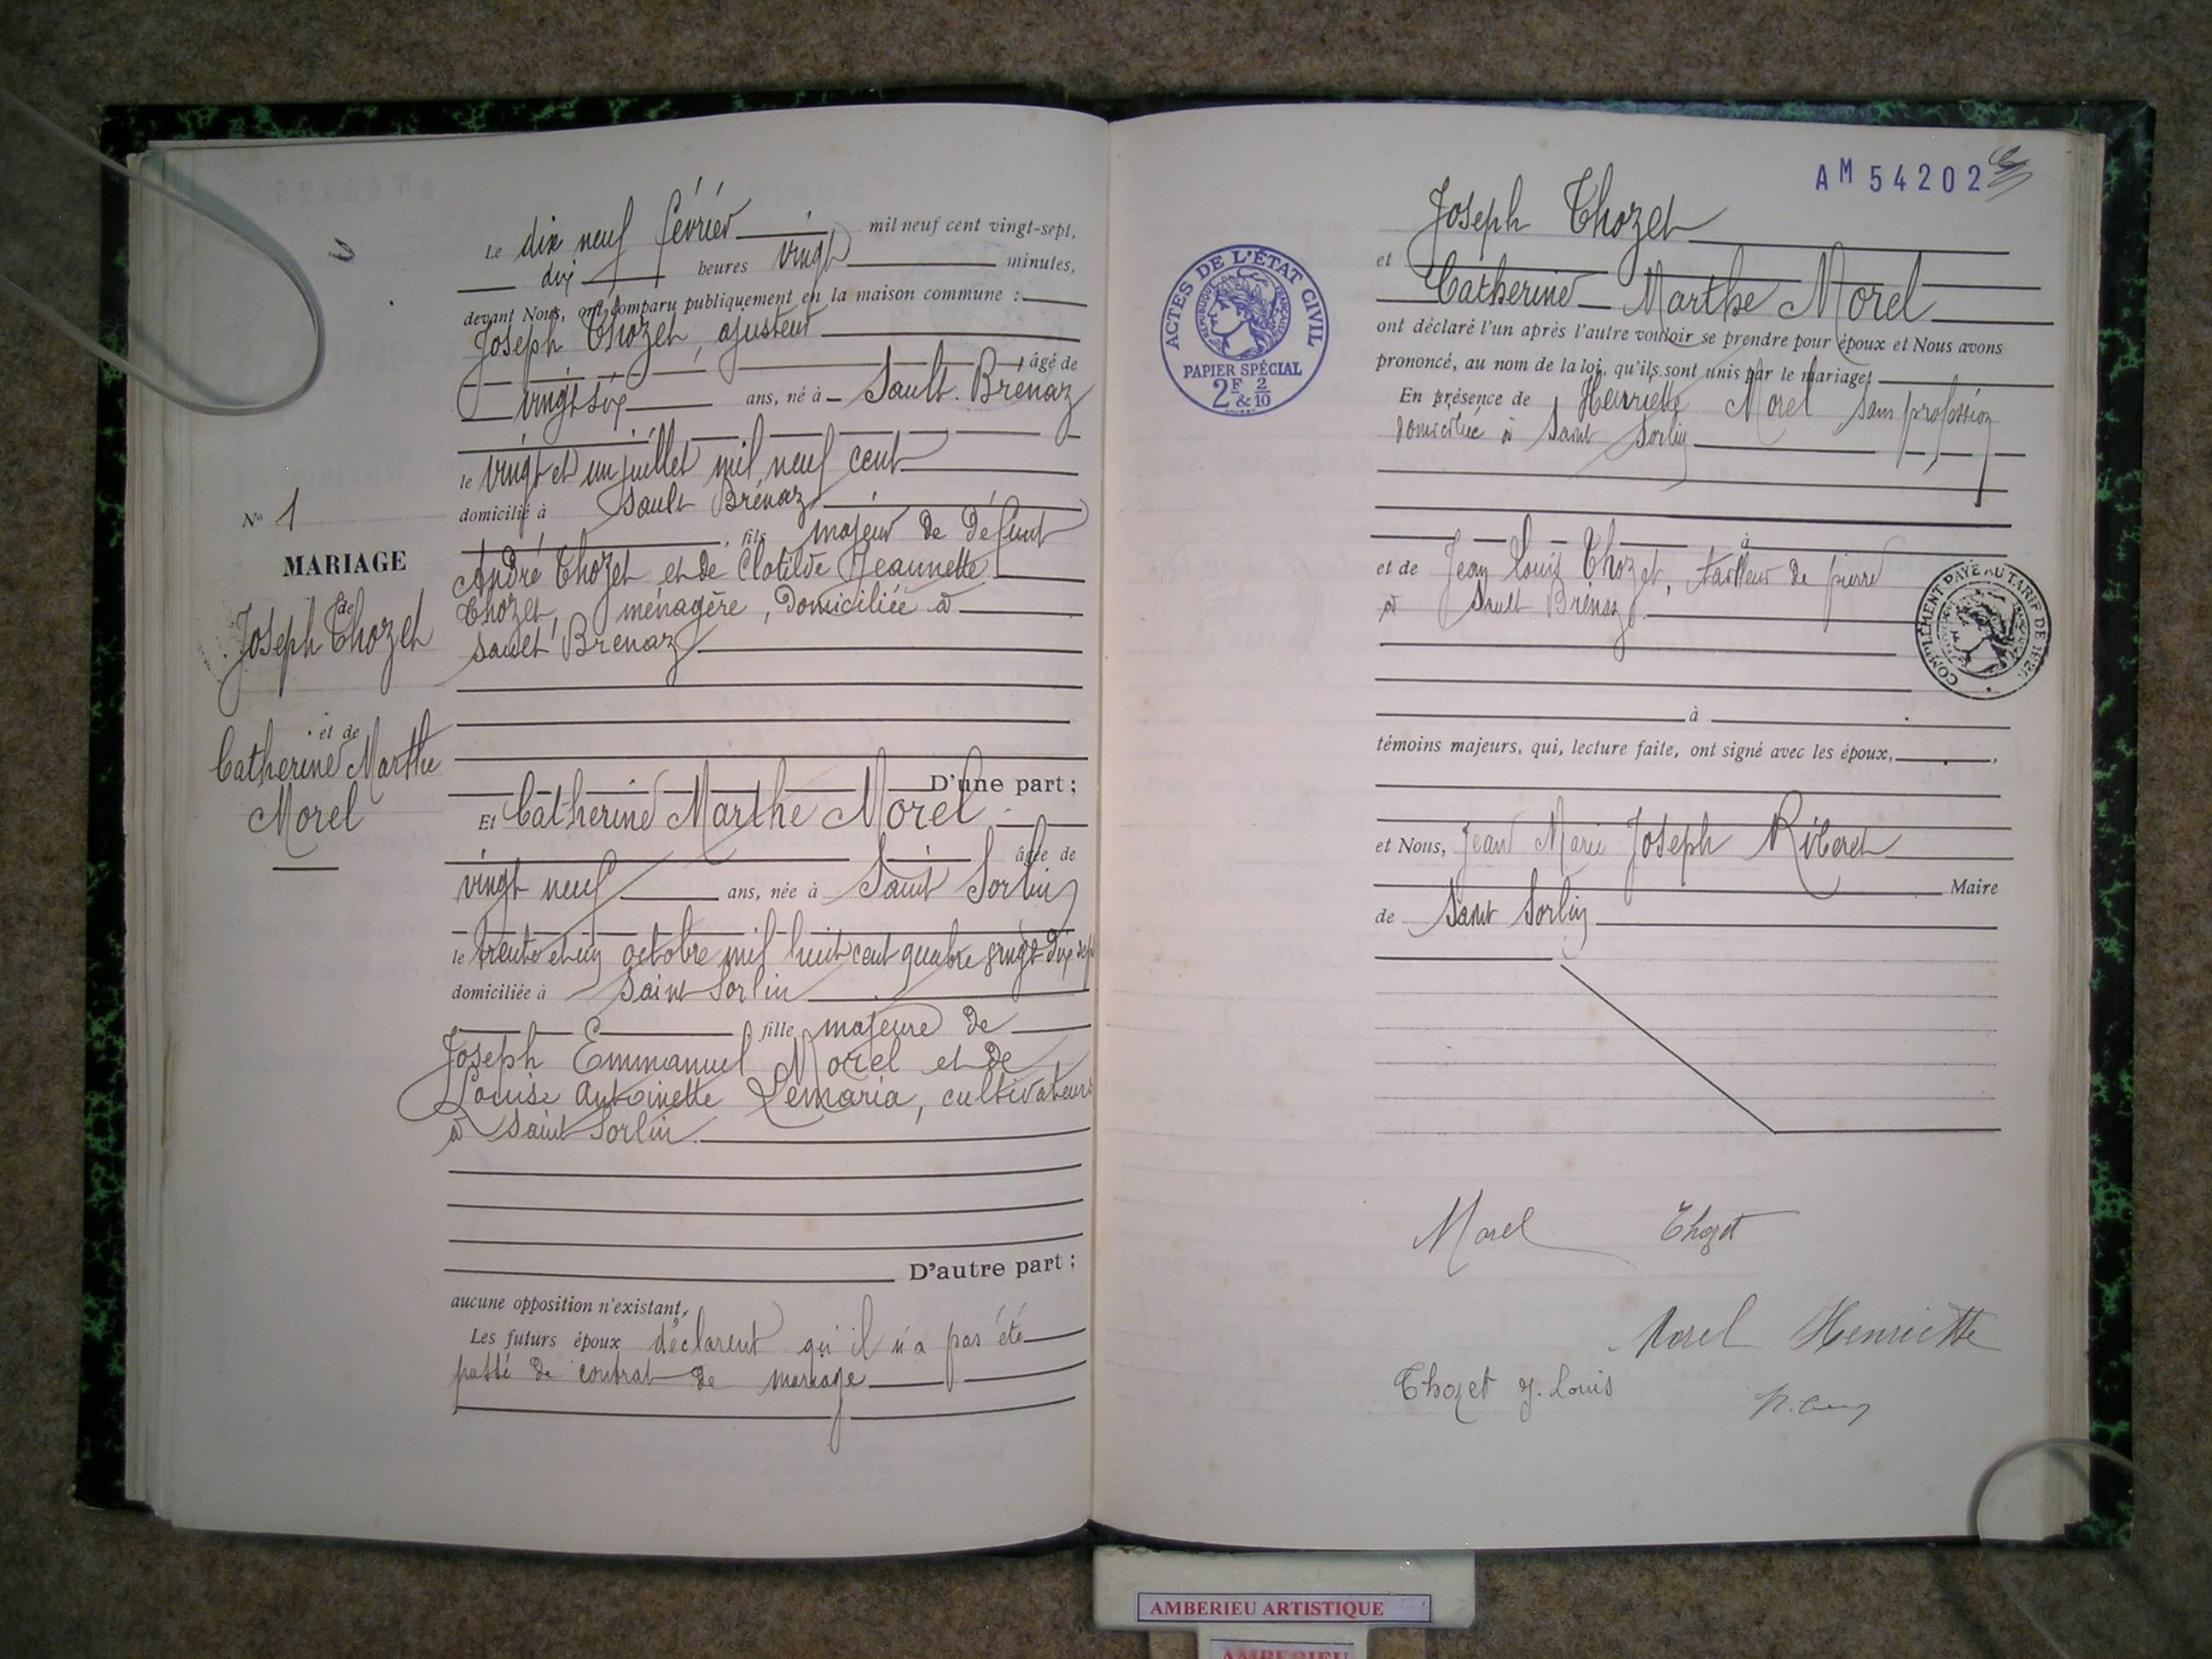 N° 1
MARIAGE
de
Joseph Thozet
et de
Catherine Marthe
Morel
Le dix neuf février mil neuf cent vingt-sept,
dix heures vingt minutes,
devant Nous, ont comparu publiquement en la maison commune :
Joseph Thozet, ajusteur
âgé de
vingt six ans, né à Sault-Brénaz
le vingt et un juillet mil neuf cent
domicilié à Sault Brénaz
, fils majeur de défunt
André Thozet et de Clotilde Jeannette
Thozet, ménagère, domiciliée à
Sault Brenaz
D'une part ;
Et Catherine Marthe Morel
âgée de
vingt neuf ans, née à Saint Sorlin
le trente et un octobre mil huit cent quatre vingt dix sept
domiciliée à Saint Sorlin
fille majeure de
Joseph Emmanuel Morel et de
Louise Antoinette Lemaria, cultivateurs
à Saint Sorlin.
D'autre part ;
aucune opposition n'existant,
Les futurs époux déclarent qu'il n'a pas été
passé de contrat de mariage
AM 54202
ACTES DE L'ÉTAT CIVIL
RÉPUBLIQUE FRANÇAISE
PAPIER SPÉCIAL
2F & 2/10
Joseph Thozet
et
Catherine Marthe Morel
ont déclaré l'un après l'autre vouloir se prendre pour époux et Nous avons
prononcé, au nom de la loi, qu'ils sont unis par le mariage,
En présence de Henriette Morel sans profession
domiciliée à Saint Sorlin
à
et de Jean Louis Thozet, tailleur de pierre
à Sault Brénaz
COMPLÉMENT PAYÉ AU TARIF DE 1926
à
témoins majeurs, qui, lecture faite, ont signé avec les époux,
et Nous, Jean Marie Joseph Riberet
Maire
de Saint Sorlin
Morel Thozet
Morel Henriette
Thozet J. Louis
AMBERIEU ARTISTIQUE
AMBERIEU